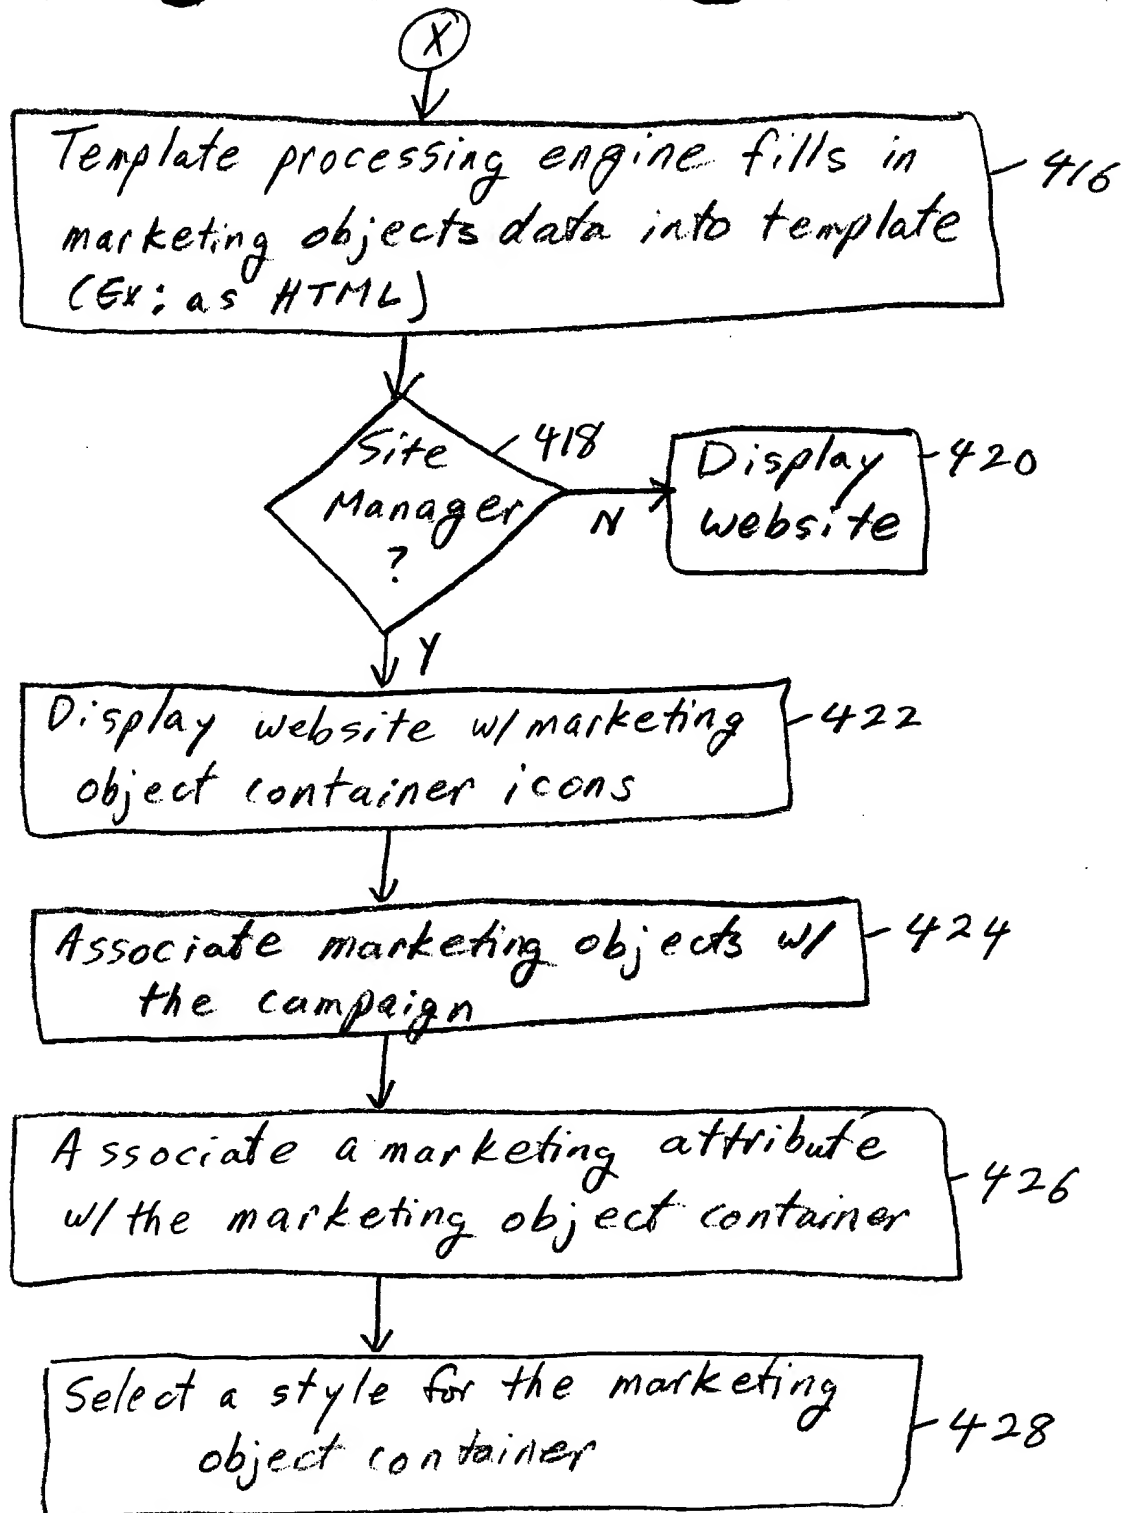 X
Template processing engine fills in
marketing objects data into template
(Ex: as HTML)
416
Site
Manager
?
418
N
Display
website
420
Y
Display website w/marketing
object container icons
422
Associate marketing objects w/
the campaign
424
Associate a marketing attribute
w/the marketing object container
426
Select a style for the marketing
object container
428